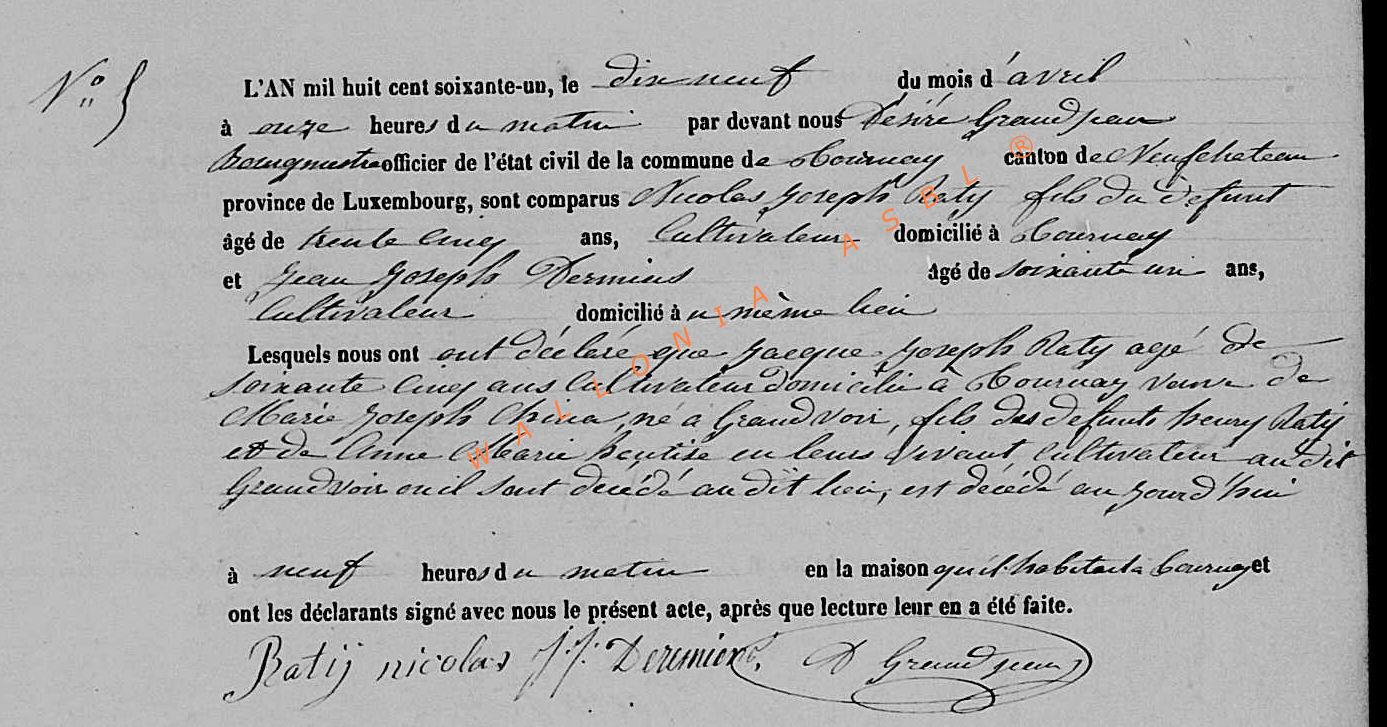 N° 5
L'AN mil huit cent soixante-un, le dix neuf du mois d'avril
à onze heures du matin par devant nous Désiré Grandjean
Bourgmestre officier de l'état civil de la commune de Tournay canton de Neufchateau
province de Luxembourg, sont comparus Nicolas Joseph Raty fils du defunt
âgé de trente cinq ans, Cultivateur domicilié à Tournay
et Jean Joseph Dermiens âgé de soixante un ans,
Cultivateur domicilié au même lieu
Lesquels nous ont ont déclaré que Jacque Joseph Raty agé de
soixante cinq ans Cultivateur domicilié à Tournay veuve de
Marie Joseph China, né à Grandvoir, fils des defunts henry Raty
et de Anne Marie en leurs vivant Cultivateur au dit
Grandvoir ou il sont decédé au dit lieu, est decédé au jourd'hui
à neuf heures du matin en la maison qu'il habitait à Tournay et
ont les déclarants signé avec nous le présent acte, après que lecture leur en a été faite.
Ratij nicolas J.J. Dermiens D Grandjean
WALLONIA ASBL ®